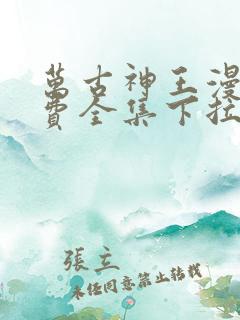 萬古神王漫
費全集下拉
張立
未任同意禁止轉載